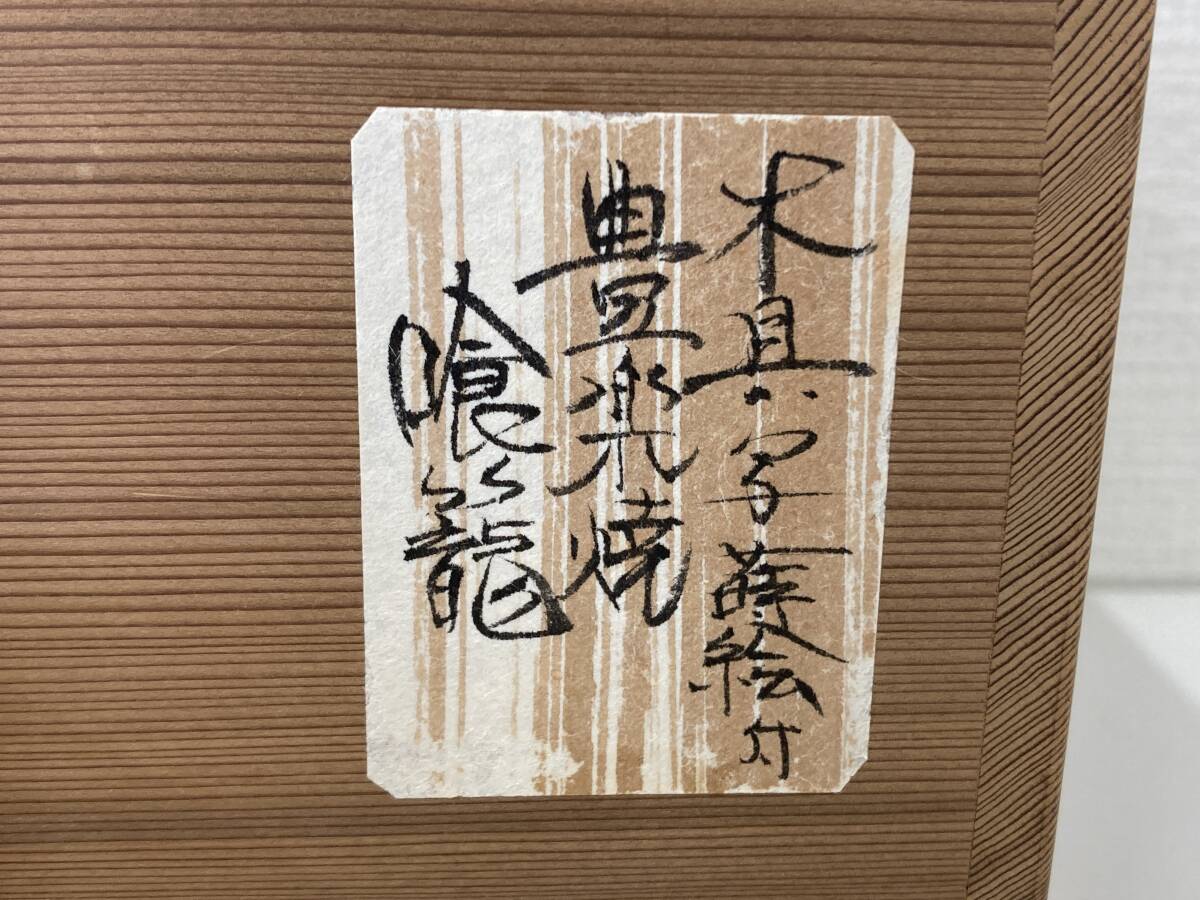 木具写蒔絵付
豊楽焼
喰籠